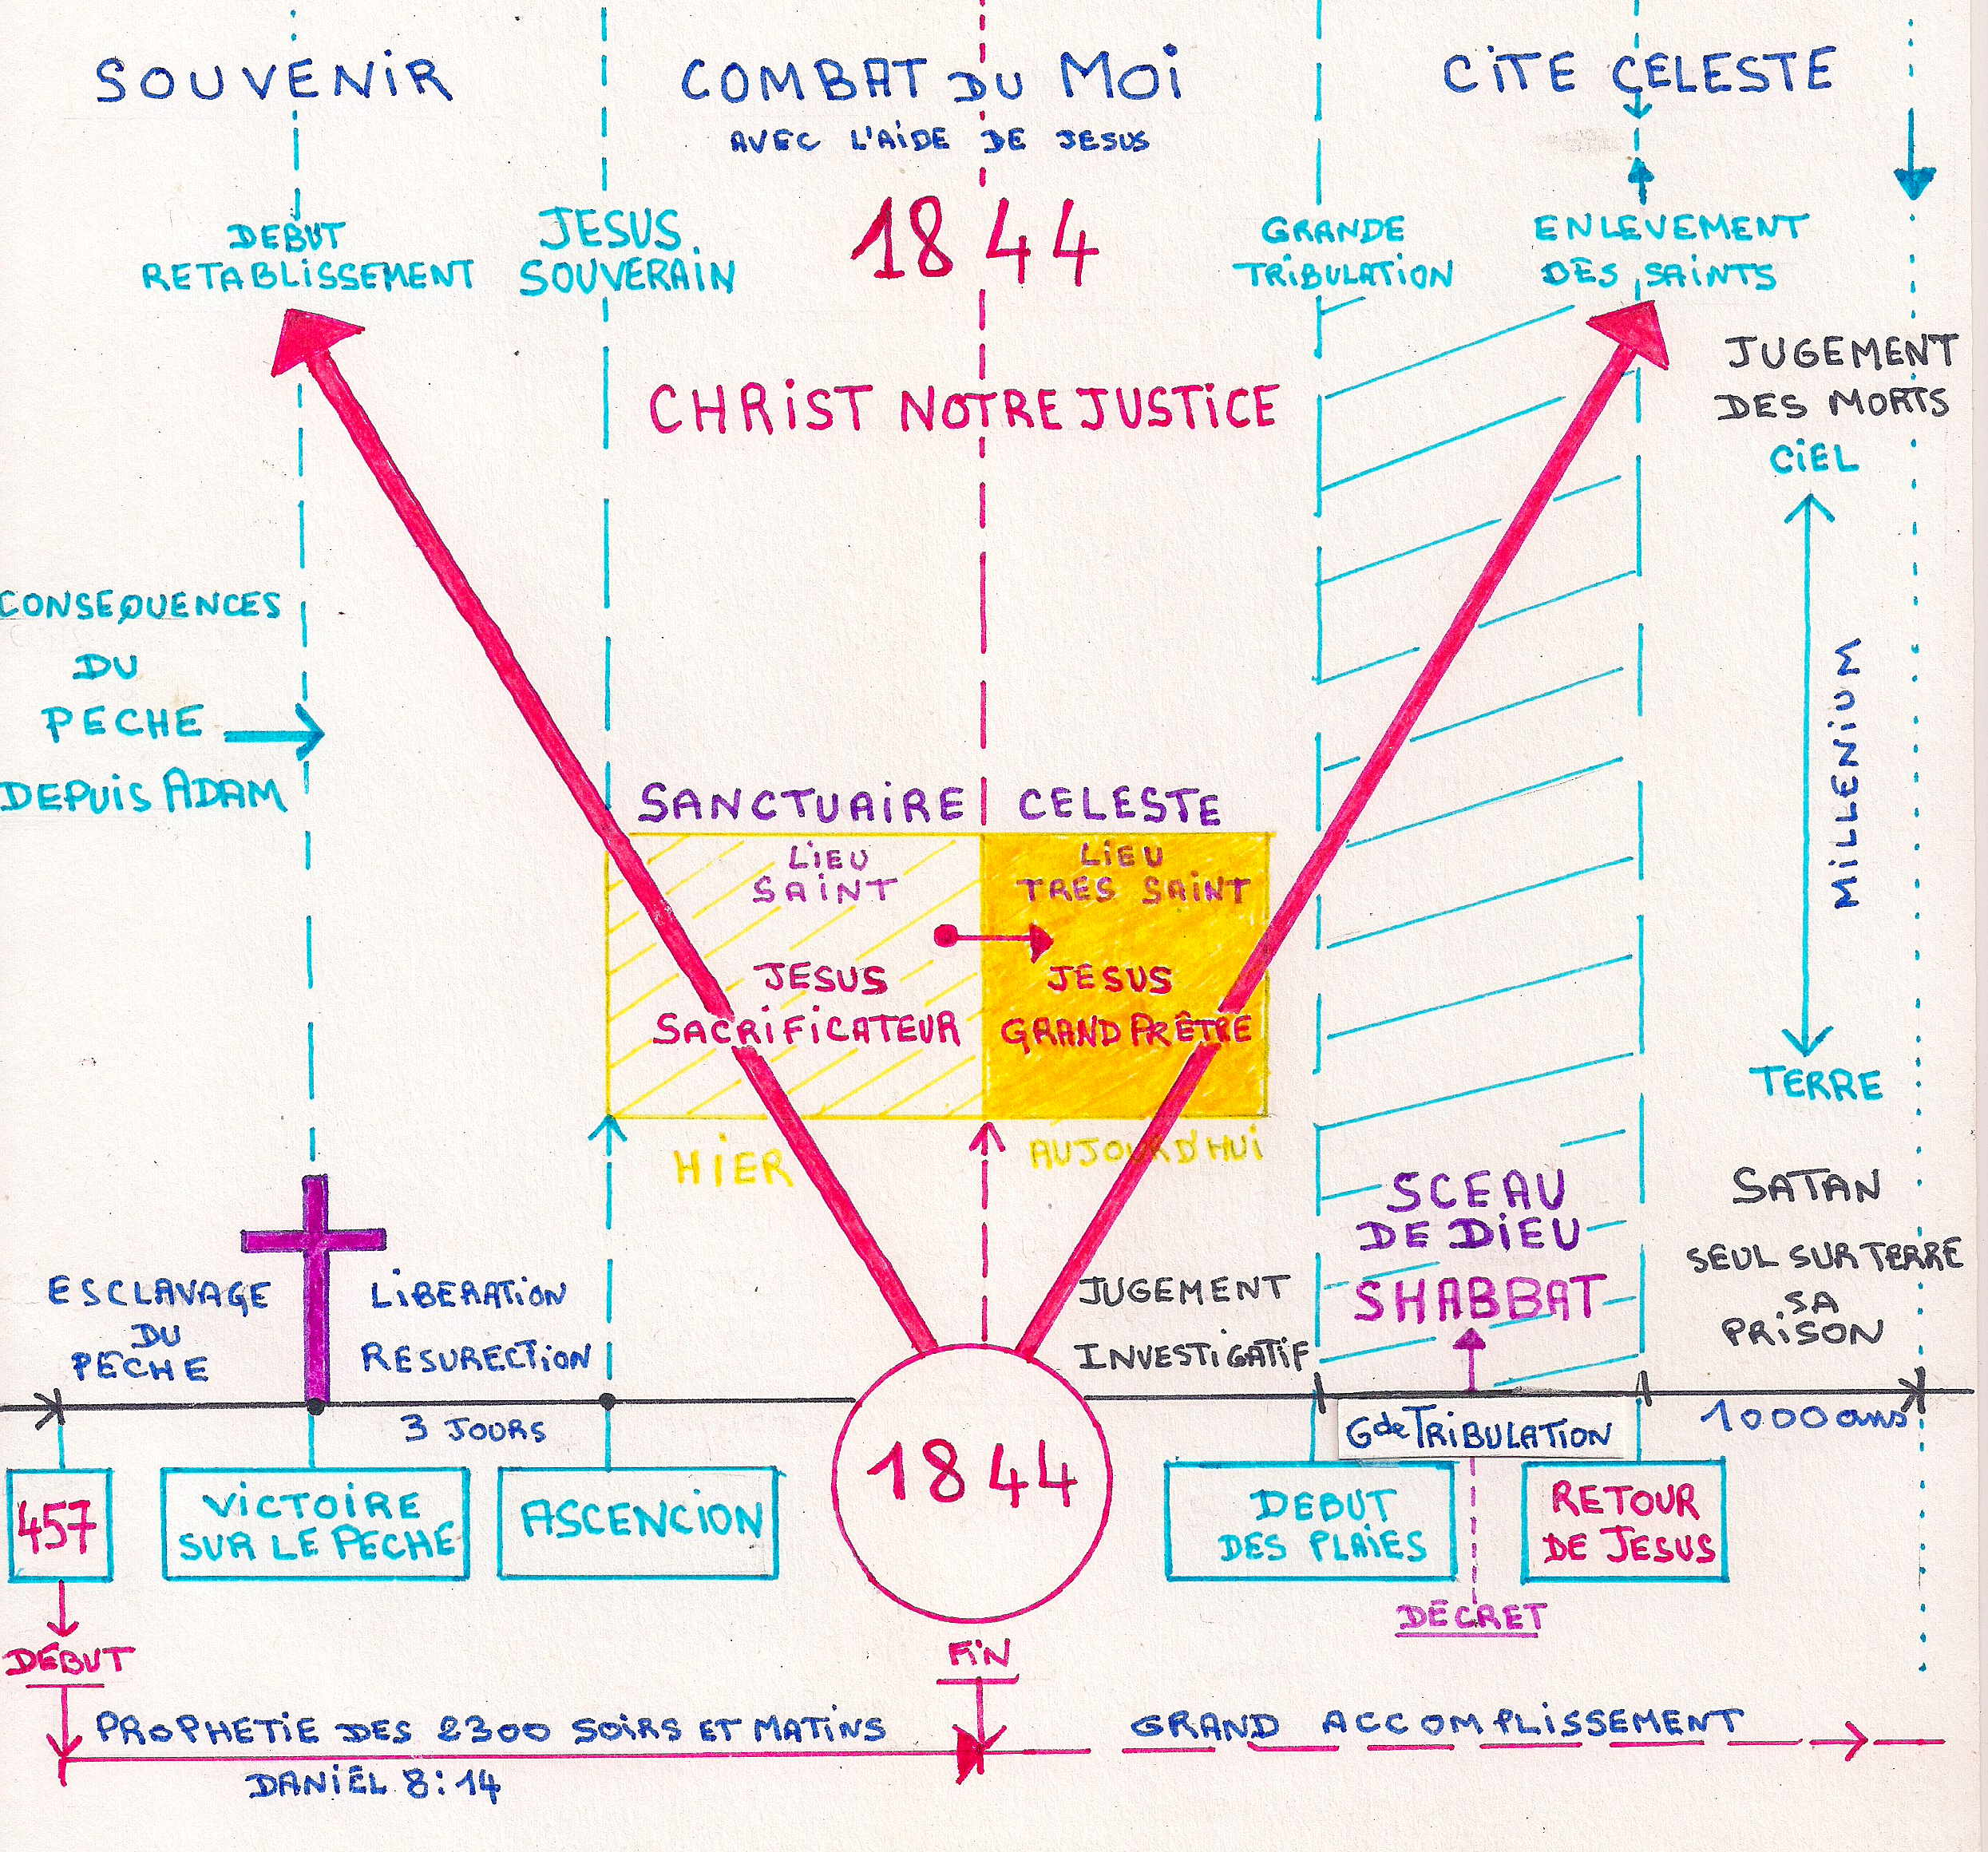 SOUVENIR
COMBAT DU MOI
AVEC L'AIDE DE JESUS
CITE CELESTE
DEBUT
RETABLISSEMENT
JESUS
SOUVERAIN
1844
GRANDE
TRIBULATION
ENLEVEMENT
DES SAINTS
CHRIST NOTRE JUSTICE
JUGEMENT
DES MORTS
CIEL
MILLENIUM
TERRE
CONSEQUENCES
DU
PECHE
DEPUIS ADAM
SANCTUAIRE CELESTE
LIEU
SAINT
LIEU
TRES SAINT
JESUS
SACRIFICATEUR
JESUS
GRAND PRÊTRE
HIER
AUJOURD'HUI
ESCLAVAGE
DU
PECHE
LIBERATION
RESURECTION
JUGEMENT
INVESTIGATIF
SCEAU
DE DIEU
SHABBAT
SATAN
SEUL SUR TERRE
SA
PRISON
3 JOURS
Gde TRIBULATION
1000 ans
457
VICTOIRE
SUR LE PECHE
ASCENCION
1844
DEBUT
DES PLAIES
RETOUR
DE JESUS
DECRET
DEBUT
FIN
PROPHETIE DES 2300 SOIRS ET MATINS
DANIEL 8:14
GRAND ACCOMPLISSEMENT